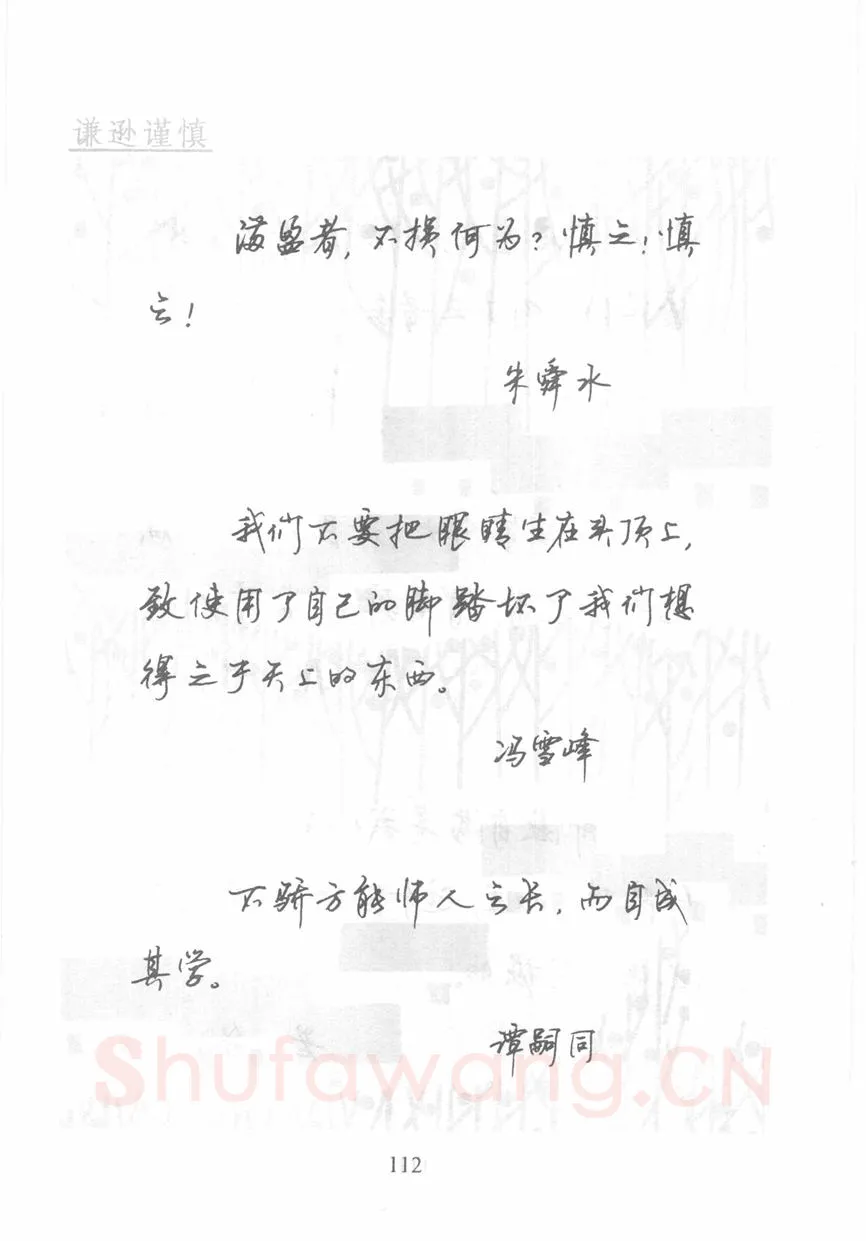 谦逊谨慎
满盈者,不损何为?慎之!慎
之!
朱舜水
我们不要把眼睛生在头顶上,
致使用了自己的脚踏坏了我们想
得之于天上的东西。
冯雪峰
不骄方能师人之长,而自成
其学。
谭嗣同
Shufawang.CN
112